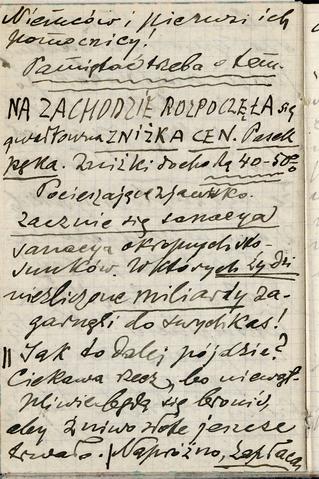 Niemców i pierwsi ich
pomocnicy!
Pamiętać trzeba o tem.
NA ZACHODZIE ROZPOCZĘŁA się
gwałtowna ZNIŻKA CEN. Pasek
pęka. Zniżki dochodzą 40-50%
Pocieszające zjawisko.
zacznie się sanacja
sanacja okropnych sto-
sunków. W których żydzi
niezliczone miliardy za-
garnęli do swych kas!
Jak to dalej pójdzie?
Ciekawa rzecz, bo niewąt-
pliwie będą się bronić,
aby żniwo złote jeszcze
trwało. Napróżno, zapłacą